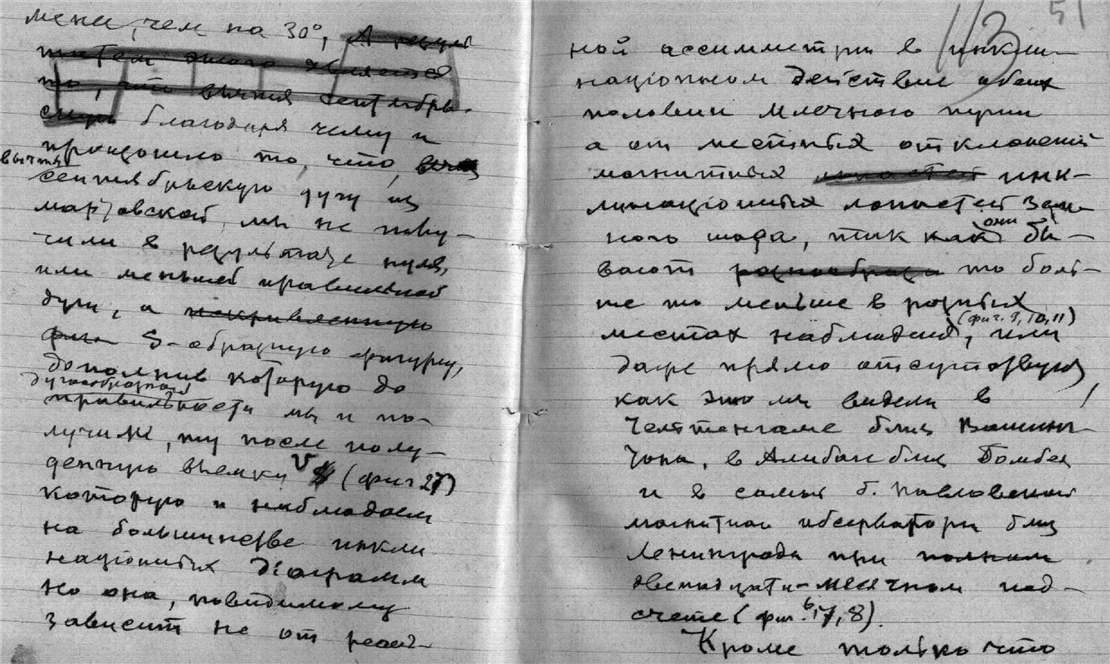 мене, чем на 30°, А резуль
татом этого является
то, что вычтя сентябрь-
скую благодаря чему и
произошло то, что,
вычтя
сентябрьскую дугу из
мартовской, мы не полу-
чили в результате нуля,
или меньшей правильной
дуги, а искривленную
фиг S-образную фигуру,
дополнив которую до
дугообразной
правильности мы и по-
лучили, ту после полу-
денную выемку V (фиг 27)
которую и наблюдаем
на большинстве инкли
национных диаграмм
Но она, повидимому
зависит не от реаль-
113 51
ной ассимметрии в инкли-
национном действие обеих
половин млечного пути
а от местных отклонений
магнитных инк-
линационных лопастей Зем-
ного шара, так как они бы-
вают то боль-
ше то меньше в разных
местах наблюдений, (фиг. 9, 10, 11) или
даже прямо отсутствуют
как это мы видели в
Чельтенгаме близ Вашинг-
тона, в Алибаг близ Бомбея
и в самой б. Павловской
магнитной обсерватори близ
Ленинграда при полном
двенадцати-месячном под-
счете (фиг. 6, 7, 8).
Кроме только что